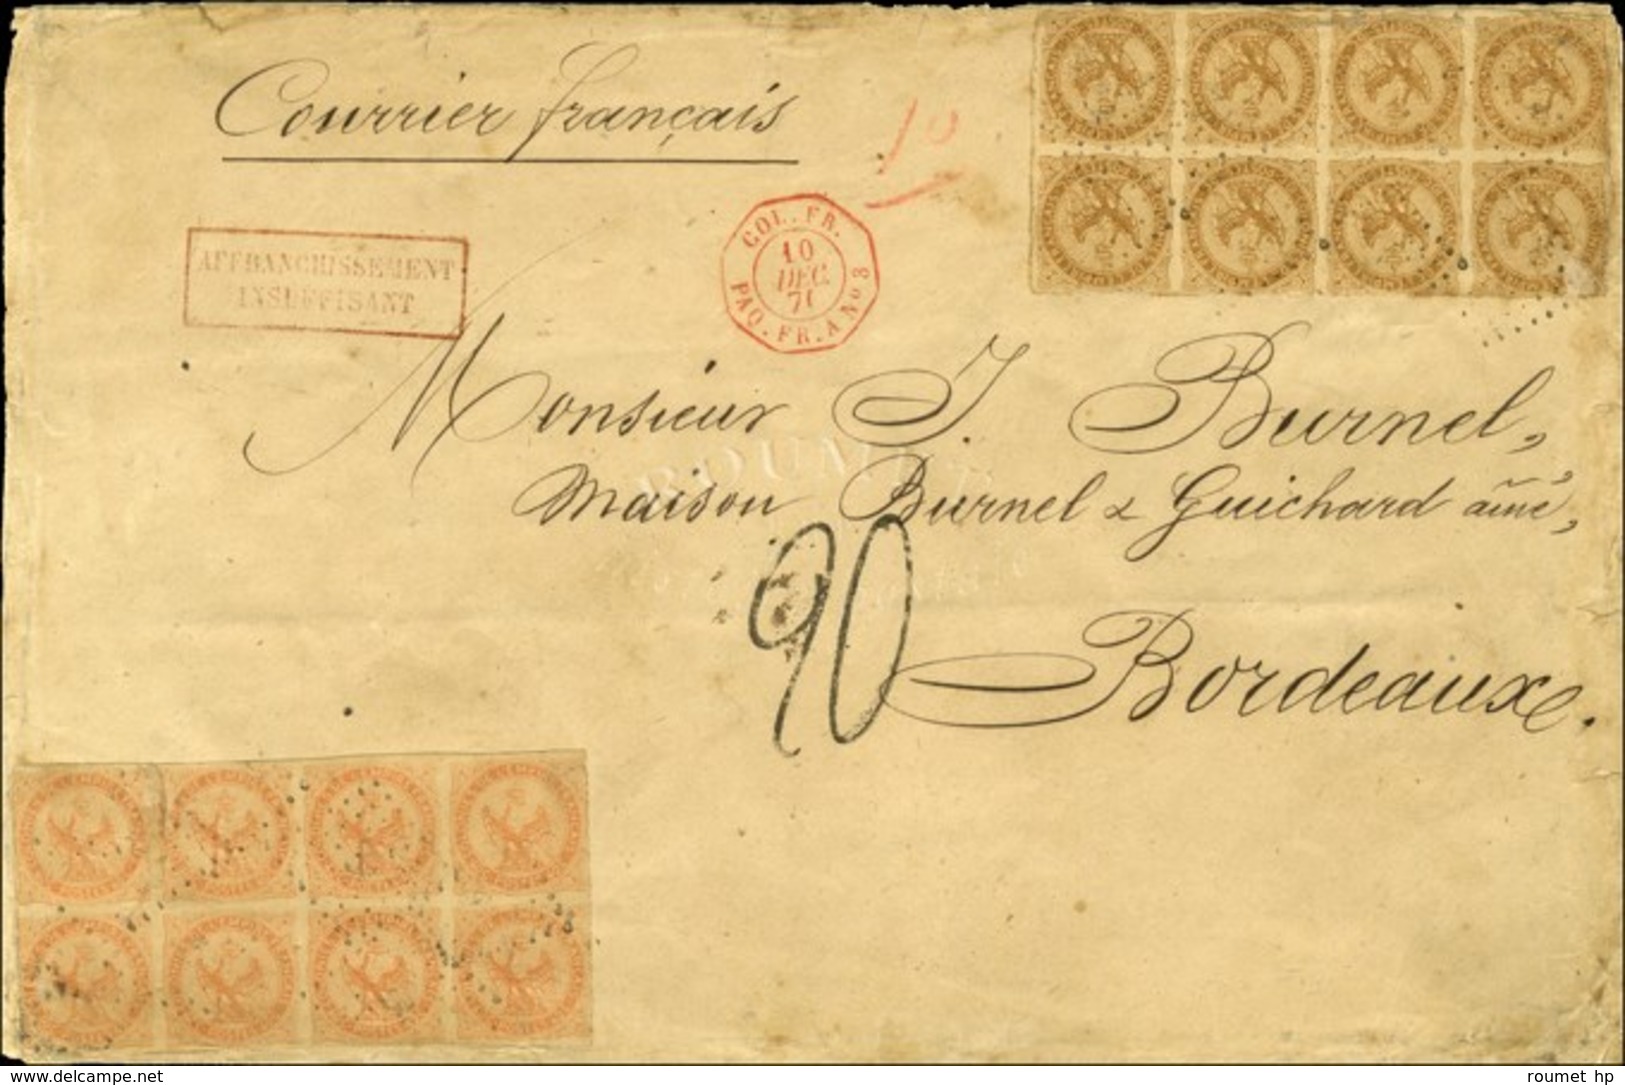 Courrier français
10
COL. FR.
10
DEC.
71
PAQ. FR. A No 8
AFFRANCHISSEMENT
INSUFFISANT
Monsieur J. Burnel,
ROUMET
Maison Burnel & Guichard aîné,
90
Bordeaux.
www.delcampe.net
roumet hp